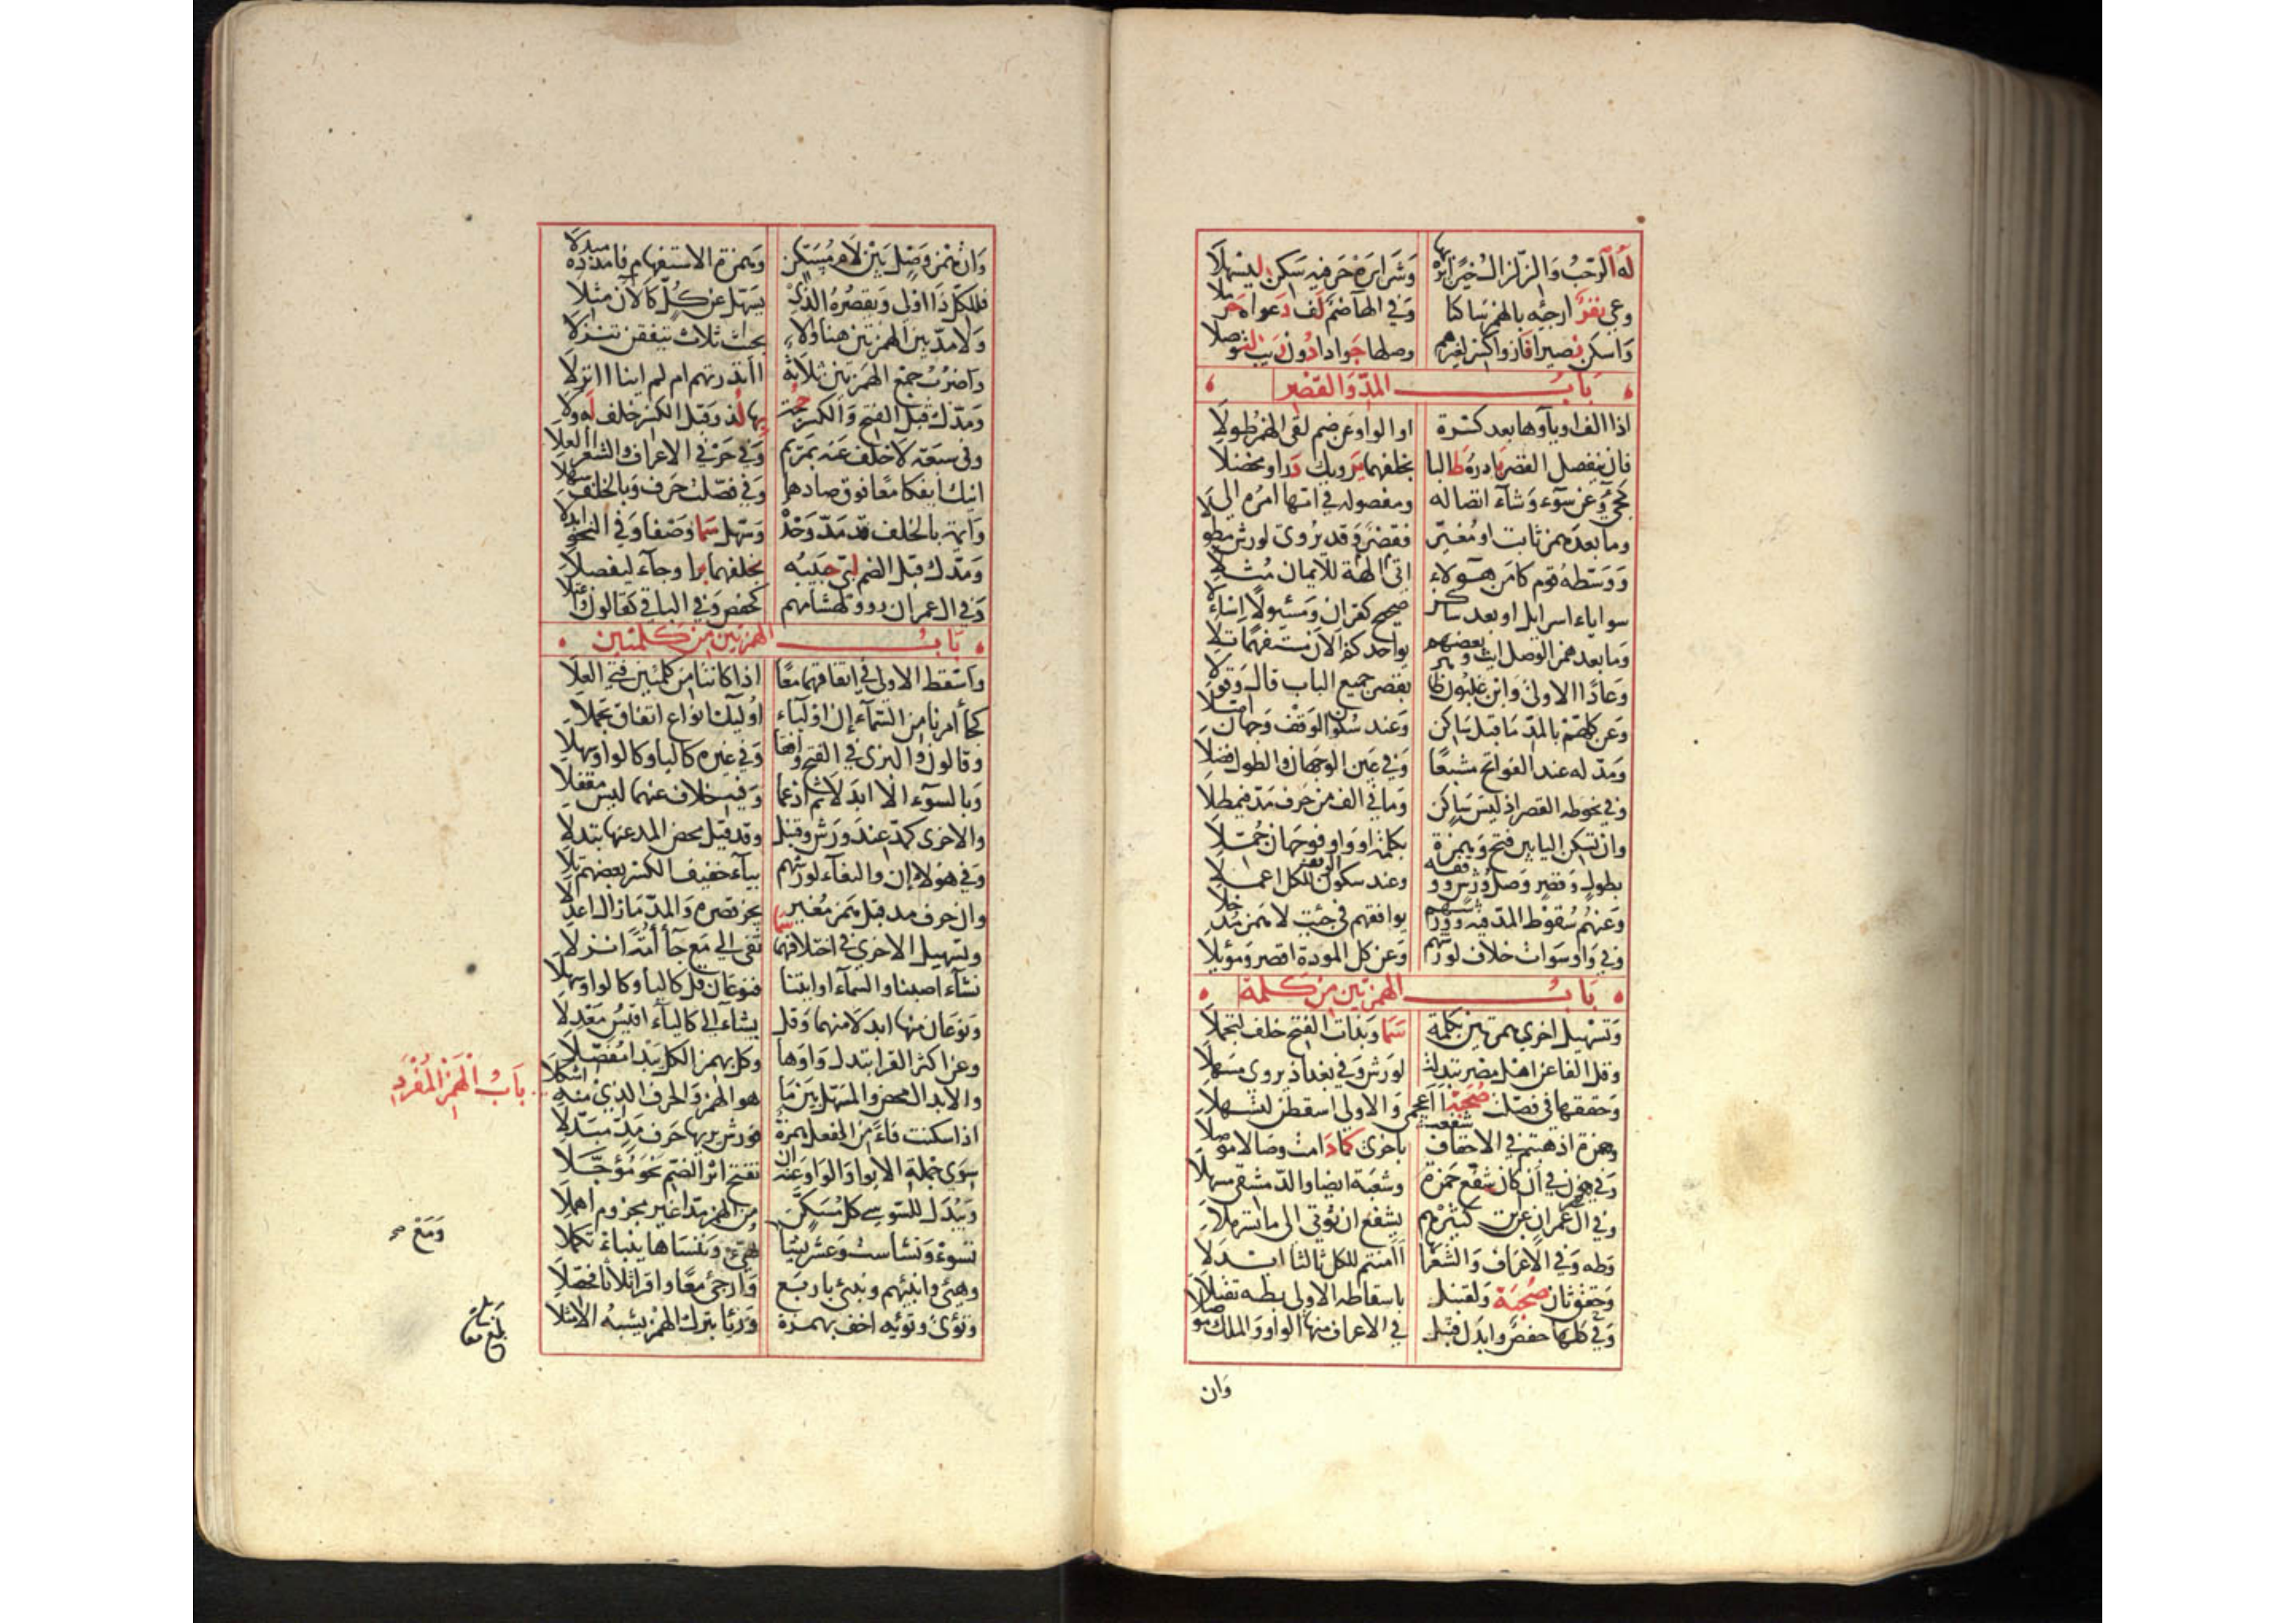 له الرحب والزلزال خيرا يره بها وشرا يره حرفيه سكن ليسهلا
وعى نفر ارجئه بالهمز ساكنا وفي الهاء ضم لف دعواه حرملا
واسكن نصيرا فاز واكسر لغيرهم وصلها جوادا دون ريب لتوصلا
باب المد والقصر
اذا الف او ياؤها بعد كسرة او الواو عن ضم لقى الهمز طولا
فان ينفصل فالقصر بادره طالبا بخلفهما يرويك درا ومخضلا
كجيء وعن سوء وشاء اتصاله ومفصوله في امها امره الى
وما بعد همز ثابت او مغير فقصر وقد يروى لورش مطولا
ووسطه قوم كامن هؤلاء الهة اتى للايمان مثلا
سوى ياء اسرايل او بعد ساكن صحيح كقران ومسئولا اسئلا
وما بعد همز الوصل ايت وبعضهم يواخذكم الان مستفهما تلا
وعادا الاولى وابن غلبون طاهر بقصر جميع الباب قال وقولا
وعن كلهم بالمد ما قبل ساكن وعند سكون الوقف وجهان اصلا
ومد له عند الفواتح مشبعا وفي عين الوجهان والطول فضلا
وفي نحو طه القصر اذ ليس ساكن وما في الف من حرف مد فيمطلا
وان تسكن اليا بين فتح وهمزة بكلمة او واو فوجهان جملا
بطول وقصر وصل ورش ووقفه وعند سكون الوقف للكل اعملا
وعنهم سقوط المد فيه وورشهم يوافقهم في حيث لا همز مدخلا
وفي واو سوات خلاف لورشهم وعن كل الموءدة اقصر وموئلا
باب الهمزتين من كلمة
وتسهيل اخرى همزتين بكلمة سما وبذات الفتح خلف لتجملا
وقل الفا عن اهل مصر تبدلت لورش وفي بغداد يروى مسهلا
وحققها في فصلت صحبة ااعجمي والاولى اسقطن لتسهلا
وهمزة اذهبتم في الاحقاف شفعت باخرى كما دامت وصالا موصلا
وفي نون في ان كان شفع حمزة وشعبة ايضا والدمشقي مسهلا
وفي ال عمران عن ابن كثيرهم يشفع ان يؤتى الى ما تسهلا
وطه وفي الاعراف والشعرا بها اامنتم للكل ثالثا ابدلا
وحقق ثان صحبة ولقنبل باسقاطه الاولى بطه تقبلا
وفي كلها حفص وابدل قنبل في الاعراف منها الواو والملك موصلا
وان
وان همز وصل بين لام مسكن وهمزة الاستفهام فامدده مبدلا
فللكل ذا اولى ويقصره الذي يسهل عن كل كالان مثلا
ولا مد بين الهمزتين هنا ولا بحيث ثلاث يتفقن تنزلا
واضرب جمع الهمزتين ثلاثة اانذرتهم ام لم ائنا اانزلا
ومدك قبل الفتح والكسر حجة بها لذ وقبل الكسر خلف له ولا
وفي سبعة لا خلف عنه بمريم وفي حرفي الاعراف والشعرا العلا
ائنك ائفكا معا فوق صادها وفي فصلت حرف وبالخلف سهلا
وائمة بالخلف قد مد وحده وسهل سما وصفا وفي النحو ابدلا
ومدك قبل الضم لبى حبيبه بخلفهما برا وجاء ليفصلا
وفي ال عمران رووا لهشامهم كحفص وفي الباقي كقالون واعتلا
باب الهمزتين من كلمتين
واسقط الاولى في اتفاقهما معا اذا كانتا من كلمتين فتى العلا
كجا امرنا من السماء ان اوليا اولئك انواع اتفاق تجملا
وقالون والبزي في الفتح وافقا وفي غيره كاليا وكالواو سهلا
وبالسوء الا ابدلا ثم ادغما وفيه خلاف عنهما ليس مقفلا
والاخرى كمد عند ورش وقنبل وقد قيل محض المد عنها تبدلا
وفي هؤلا ان والبغاء ان لورشهم بياء خفيف الكسر بعضهم تلا
وان حرف مد قبل همز مغير يجز قصره والمد ما زال اعدلا
وتسهيل الاخرى في اختلافهما سما تفئ الى مع جاء امة انزلا
نشاء اصبنا والسماء او ائتنا فنوعان قل كاليا وكالواو سهلا
ونوعان منها ابدلا منهما وقل يشاء الى كالياء اقيس معدلا
وعن اكثر القرا تبدل واوها وكل بهمز الكل يبدا مفصلا
والابدال محض والمسهل بين ما هو الهمز والحرف الذي منه اشكلا
باب الهمز المفرد
اذا سكنت فاء من الفعل همزة فورش يريها حرف مد مبدلا
سوى جملة الايوا والواو عنه ان تفتح اثر الضم نحو مؤجلا
ويبدل للسوسي كل مسكن من الهمز مدا غير مجزوم اهملا
تسوء ونشا ست وعشر يشا ومع يهيئ وننساها ينبا تكملا
وهيئ وانبئهم ونبئ باربع وارجئ معا واقرا ثلاثا فحصلا
وتؤي وتؤيه اخف بهمزة ورئيا بترك الهمز يشبه الامتلا
ومع صح
بلغ